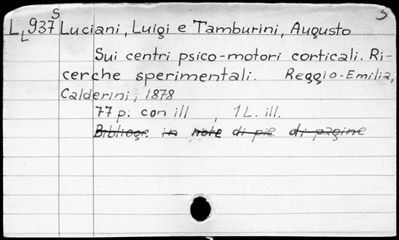 S S
LL937 Luciani, Luigi e Tamburini, Augusto
Sui centri psico-motori corticali. Ri-
cerche sperimentali. Reggio-Emilia,
Calderini, 1878
77 p. con ill , 1 L. ill.
Bibliogr. in note di pie di pagine